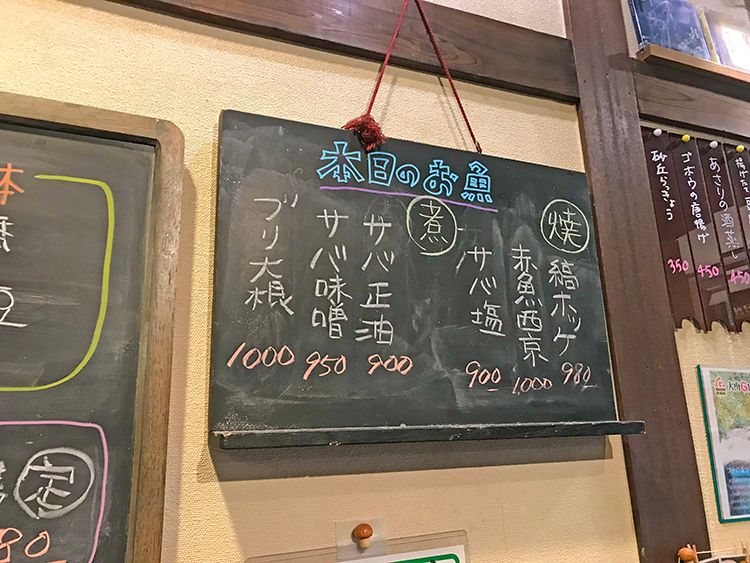 本日のお魚
焼
縞ホッケ
980
赤魚西京
1000
サバ塩
900
煮
サバ正油
900
サバ味噌
950
ブリ大根
1000
あさりの酒蒸し
450
ゴボウの唐揚げ
450
砂丘らっきょう
350
本
定
80